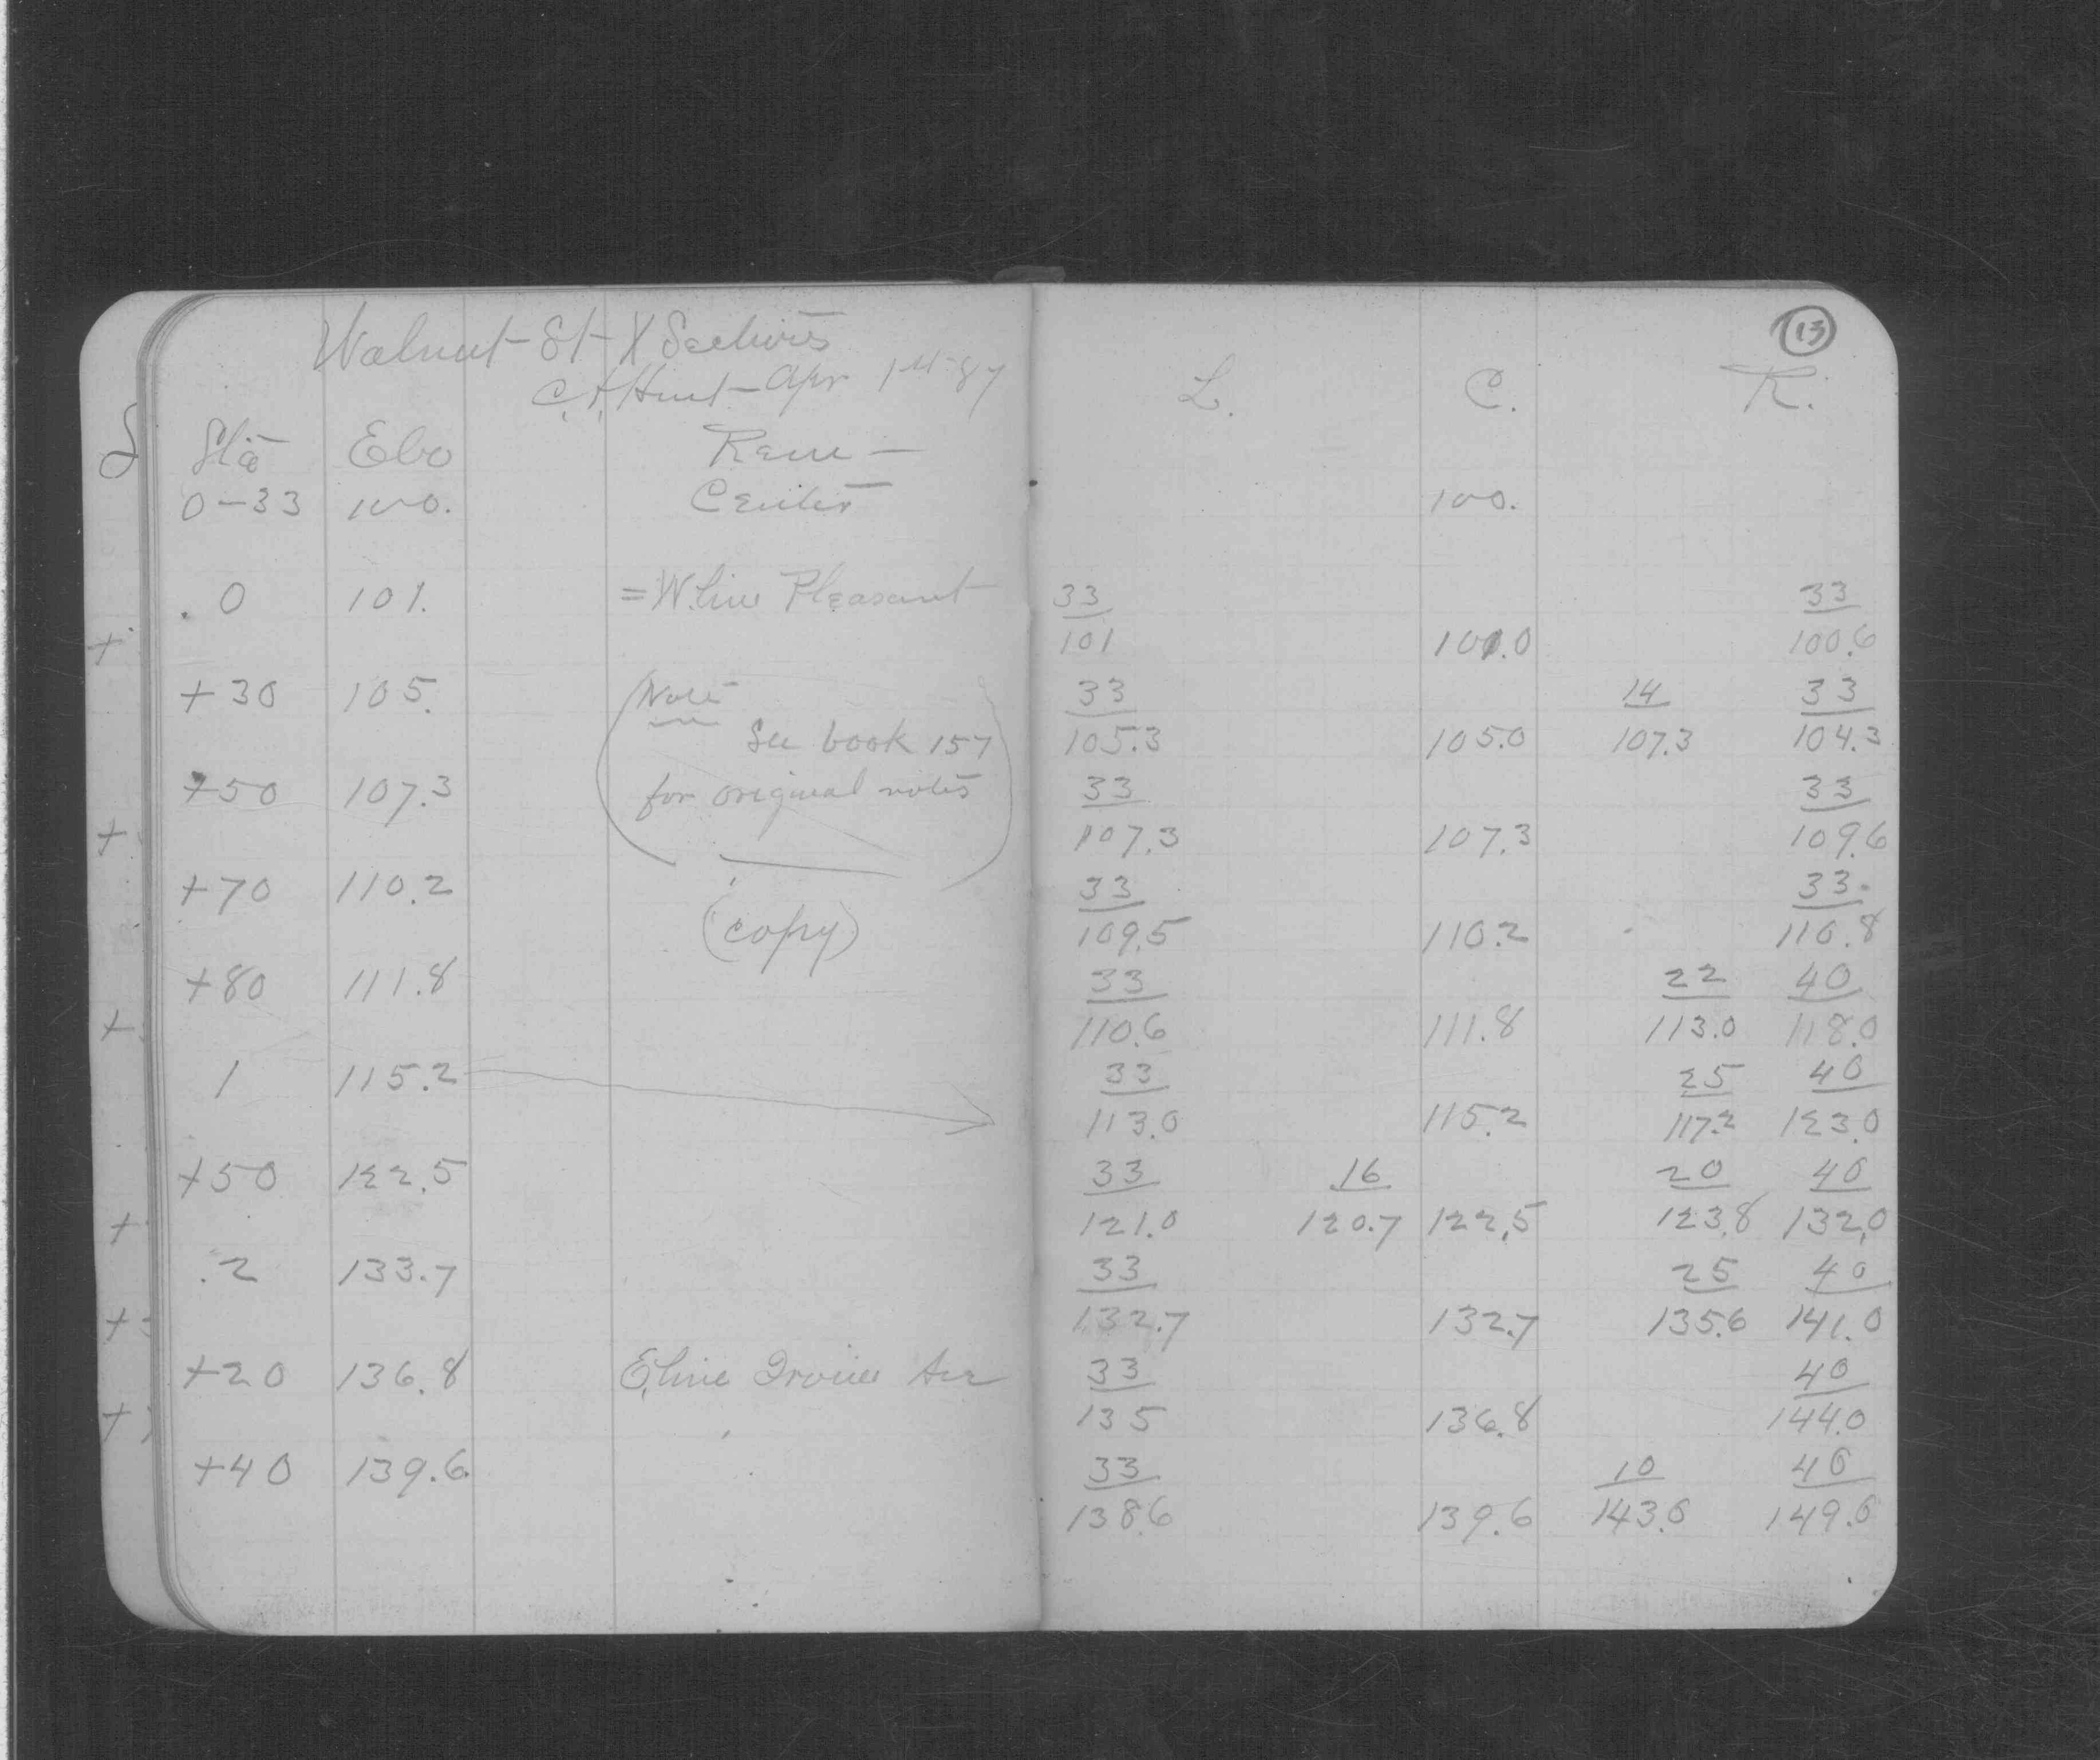 Walnut St X Sections
C.A. Hunt - Apr 1st 87
13
L. C. R.
Sta Elev Rem -
0-33 100. Center 100.
.0 101. = W. line Pleasant 33 33
101 101.0 100.6
+30 105. (Note 33 14 33
See book 157 105.3 105.0 107.3 104.3
+50 107.3 for original notes) 33 33
107.3 107.3 109.6
+70 110.2 33 33
(copy) 109.5 110.2 110.8
+80 111.8 33 22 40
110.6 111.8 113.0 118.0
1 115.2 33 25 40
113.0 115.2 117.2 123.0
+50 122.5 33 16 20 40
121.0 120.7 122.5 123.8 132.0
.2 133.7 33 25 40
132.7 132.7 135.6 141.0
+20 136.8 E. line Irving Ave 33 40
135 136.8 144.0
+40 139.6 33 10 40
138.6 139.6 143.6 149.6